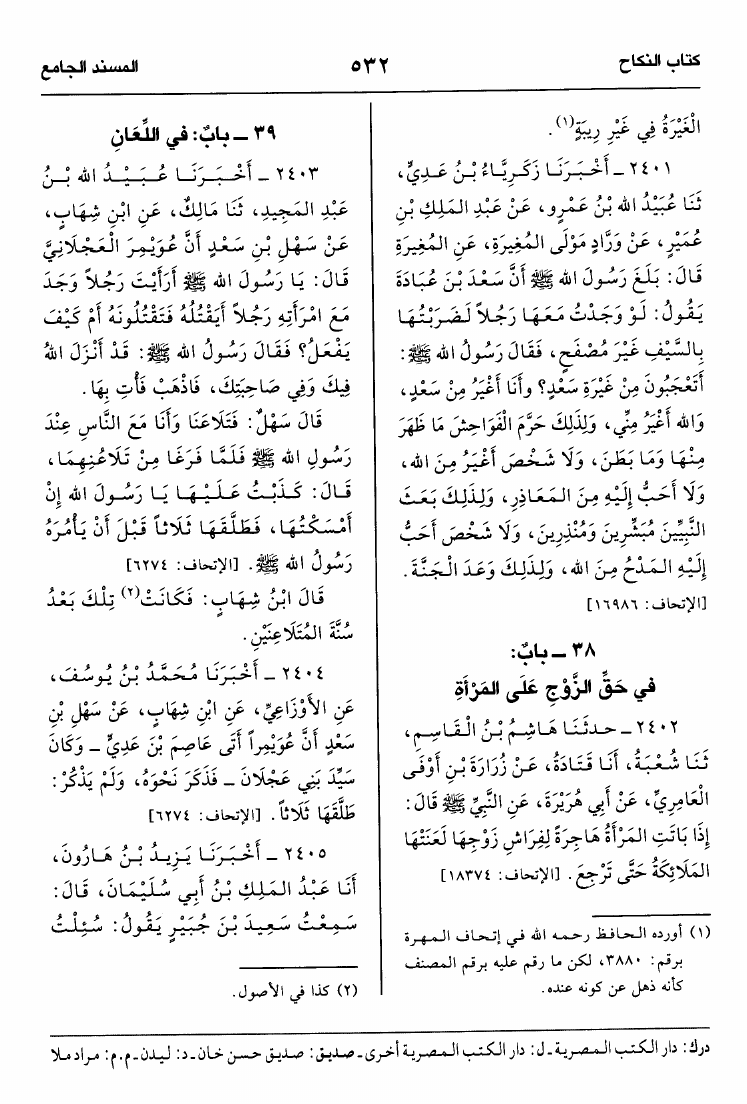 كتاب النكاح
٥٣٢
المسند الجامع
الْغَيْرَةُ فِي غَيْرِ رِيبَةٍ(١).
٢٤٠١ ـ أَخْبَرَنَا زَكَرِيَّاءُ بْنُ عَدِيٍّ،
ثَنَا عُبَيْدُ الله بْنُ عَمْرٍو، عَنْ عَبْدِ المَلِكِ بْنِ
عُمَيْرٍ، عَنْ وَرَّادٍ مَوْلَى المُغِيرَةِ، عَنِ المُغِيرَةِ
قَالَ: بَلَغَ رَسُولَ الله ﷺ أَنَّ سَعْدَ بْنَ عُبَادَةَ
يَقُولُ: لَوْ وَجَدْتُ مَعَهَا رَجُلاً لَضَرَبْتُهَا
بِالسَّيْفِ غَيْرَ مُصْفَحٍ، فَقَالَ رَسُولُ الله ﷺ:
أَتَعْجَبُونَ مِنْ غَيْرَةِ سَعْدٍ؟ وأَنَا أَغْيَرُ مِنْ سَعْدٍ،
وَالله أَغْيَرُ مِنِّي، وَلِذَلِكَ حَرَّمَ الْفَوَاحِشَ مَا ظَهَرَ
مِنْهَا وَمَا بَطَنَ، وَلَا شَخْصَ أَغْيَرُ مِنَ الله،
وَلَا أَحَبُّ إِلَيْهِ مِنَ المَعَاذِرِ، وَلِذَلِكَ بَعَثَ
النَّبِيِّينَ مُبَشِّرِينَ وَمُنْذِرِينَ، وَلَا شَخْصَ أَحَبُّ
إِلَيْهِ المَدْحُ مِنَ الله، وَلِذَلِكَ وَعَدَ الْجَنَّةَ.
[الإتحاف: ١٦٩٨٦]
٣٨ ـ بابٌ:
في حَقِّ الزَّوْجِ عَلَى المَرْأَةِ
٢٤٠٢ ـ حدثَنَا هَاشِمُ بْنُ الْقَاسِمِ،
ثَنَا شُعْبَةُ، أَنَا قَتَادَةُ، عَنْ زُرَارَةَ بْنِ أَوْفَى
الْعَامِرِيِّ، عَنْ أَبِي هُرَيْرَةَ، عَنِ النَّبِيِّ ﷺ قَالَ:
إِذَا بَاتَتِ المَرْأَةُ هَاجِرَةً لِفِرَاشِ زَوْجِهَا لَعَنَتْهَا
المَلَائِكَةُ حَتَّى تَرْجِعَ. [الإتحاف: ١٨٣٧٤]
(١) أورده الحافظ رحمه الله في إتحاف المهرة
برقم: ٣٨٨٠، لكن ما رقم عليه برقم المصنف
كأنه ذهل عن كونه عنده.
٣٩ ـ بابٌ: في اللِّعَانِ
٢٤٠٣ ـ أَخْبَرَنَا عُبَيْدُ الله بْنُ
عَبْدِ المَجِيدِ، ثَنَا مَالِكٌ، عَنِ ابْنِ شِهَابٍ،
عَنْ سَهْلِ بْنِ سَعْدٍ أَنَّ عُوَيْمِرَ الْعَجْلَانِيَّ
قَالَ: يَا رَسُولَ الله ﷺ أَرَأَيْتَ رَجُلاً وَجَدَ
مَعَ امْرَأَتِهِ رَجُلاً أَيَقْتُلُهُ فَتَقْتُلُونَهُ أَمْ كَيْفَ
يَفْعَلُ؟ فَقَالَ رَسُولُ الله ﷺ: قَدْ أَنْزَلَ اللهُ
فِيكَ وَفِي صَاحِبَتِكَ، فَاذْهَبْ فَأْتِ بِهَا.
قَالَ سَهْلٌ: فَتَلَاعَنَا وَأَنَا مَعَ النَّاسِ عِنْدَ
رَسُولِ الله ﷺ فَلَمَّا فَرَغَا مِنْ تَلَاعُنِهِمَا،
قَالَ: كَذَبْتُ عَلَيْهَا يَا رَسُولَ الله إِنْ
أَمْسَكْتُهَا، فَطَلَّقَهَا ثَلَاثاً قَبْلَ أَنْ يَأْمُرَهُ
رَسُولُ الله ﷺ. [الإتحاف: ٦٢٧٤]
قَالَ ابْنُ شِهَابٍ: فَكَانَتْ(٢) تِلْكَ بَعْدُ
سُنَّةَ المُتَلَاعِنَيْنِ.
٢٤٠٤ ـ أَخْبَرَنَا مُحَمَّدُ بْنُ يُوسُفَ،
عَنِ الأَوْزَاعِيِّ، عَنِ ابْنِ شِهَابٍ، عَنْ سَهْلِ بْنِ
سَعْدٍ أَنَّ عُوَيْمِراً أَتَى عَاصِمَ بْنَ عَدِيٍّ ـ وَكَانَ
سَيِّدَ بَنِي عَجْلَانَ ـ فَذَكَرَ نَحْوَهُ، وَلَمْ يَذْكُرْ:
طَلَّقَهَا ثَلَاثاً. [الإتحاف: ٦٢٧٤]
٢٤٠٥ ـ أَخْبَرَنَا يَزِيدُ بْنُ هَارُونَ،
أَنَا عَبْدُ المَلِكِ بْنُ أَبِي سُلَيْمَانَ، قَالَ:
سَمِعْتُ سَعِيدَ بْنَ جُبَيْرٍ يَقُولُ: سُئِلْتُ
(٢) كذا في الأصول.
درك: دار الكتب المصرية ـ ل: دار الكتب المصرية أخرى ـ صديق: صديق حسن خان ـ د: ليدن ـ م.م: مراد ملا